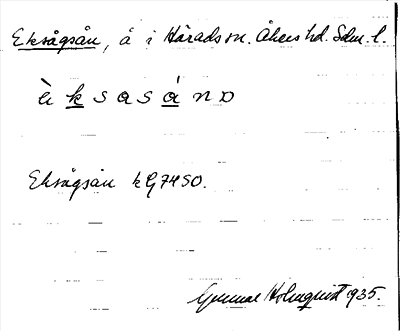 Eksågsån, å i Härads sn. Åkers hd. Sdm. l.
è k s a s á n ɒ
Eksågsån kG7450.
Gunnar Holmquist 1935.